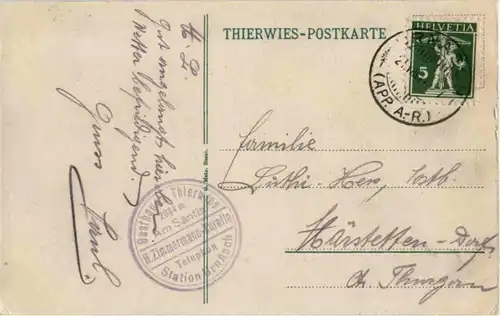 THIERWIES-POSTKARTE
HELVETIA
5
(APP. A.-R.)
M. L.
Gut angelangt hier.
Wetter befriedigend.
Gruss
Familie
Lüthi-Hess, Postb.
Märstetten-Dorf,
Kt. Thurgau
Gasthaus Thierwies
am Säntis
H. Zimmermann
Telephon
Station Urnäsch